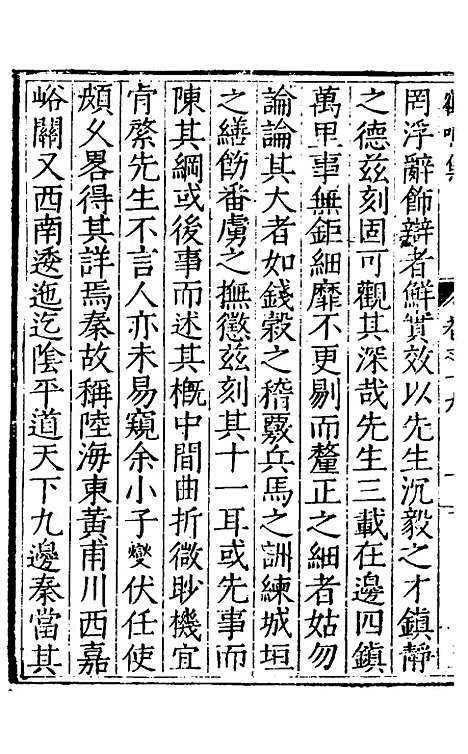 罔浮辭飾辯者鮮實效以先生沉毅之才鎮靜
之德兹刻固可觀其深哉先生三載在邊四鎮
萬里事無鉅細靡不更剔而釐正之細者姑勿
論論其大者如錢榖之稽覈兵馬之訓練城垣
之繕飭番虜之撫懲兹刻其十一耳或先事而
陳其綱或後事而述其概中間曲折微眇機宜
肯綮先生不言人亦未易窺余小子夑伏任使
頗久畧得其詳焉秦故稱陸海東黃甫川西嘉
峪關又西南逶迤迄陰平道天下九邊秦當其